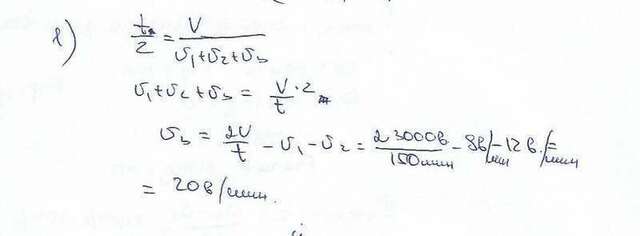 в) t/2 = V/(υ₁+υ₂+υ₃)
υ₁+υ₂+υ₃ = V/t · 2
υ₃ = 2V/t - υ₁ - υ₂ = 2 3000в/150мин - 8в/мин - 12в/мин =
= 20в/мин.